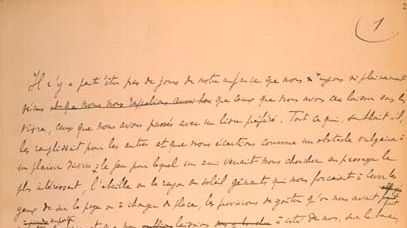 1
Il n'y a peut-être pas de jours de notre enfance que nous n'ayons si pleinement
vécus que ceux que nous avons cru laisser sans les
vivre, ceux que nous avons passés avec un livre préféré. Tout ce qui, semblait-il,
les remplissait pour les autres et que nous écartions comme un obstacle vulgaire à
un plaisir divin: le jeu pour lequel un ami venait nous chercher au passage le
plus intéressant, l'abeille ou le rayon de soleil gênants qui nous forçaient à lever les
yeux de sur la page ou à changer de place, les provisions de goûter qu'on nous avait
à côté de nous, sur le banc,